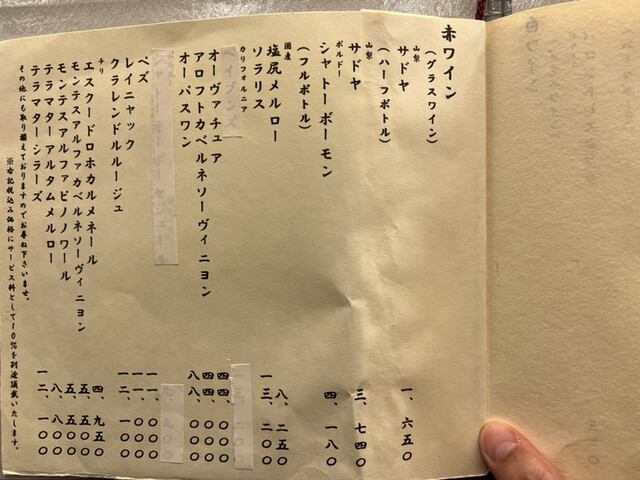 赤ワイン
(グラスワイン)
山梨
サドヤ 一、六五〇
(ハーフボトル)
山梨
サドヤ 三、七四〇
ボルドー
シャトーボーモン 四、一八〇
(フルボトル)
国産
塩尻メルロー 八、二五〇
ソラリス 一三、二〇〇
カリフォルニア
ヘイブンズ
オーヴァチュア 四四、〇〇〇
アロフトカベルネソーヴィニヨン 四四、〇〇〇
オーパスワン 八八、〇〇〇
ベズ 一一、〇〇〇
レイニャック 一一、〇〇〇
クラレンドルルージュ 一二、一〇〇
チリ
エスクードロホカルメネール 四、九五〇
モンテスアルファカベルネソーヴィニヨン 五、五〇〇
モンテスアルファピノノワール 五、五〇〇
テラマターアルタムメルロー 八、八〇〇
テラマターシラーズ 一二、一〇〇
その他にも取り揃えておりますのでお尋ね下さいませ。
※右記税込み価格にサービス料として10%を別途頂戴いたします。